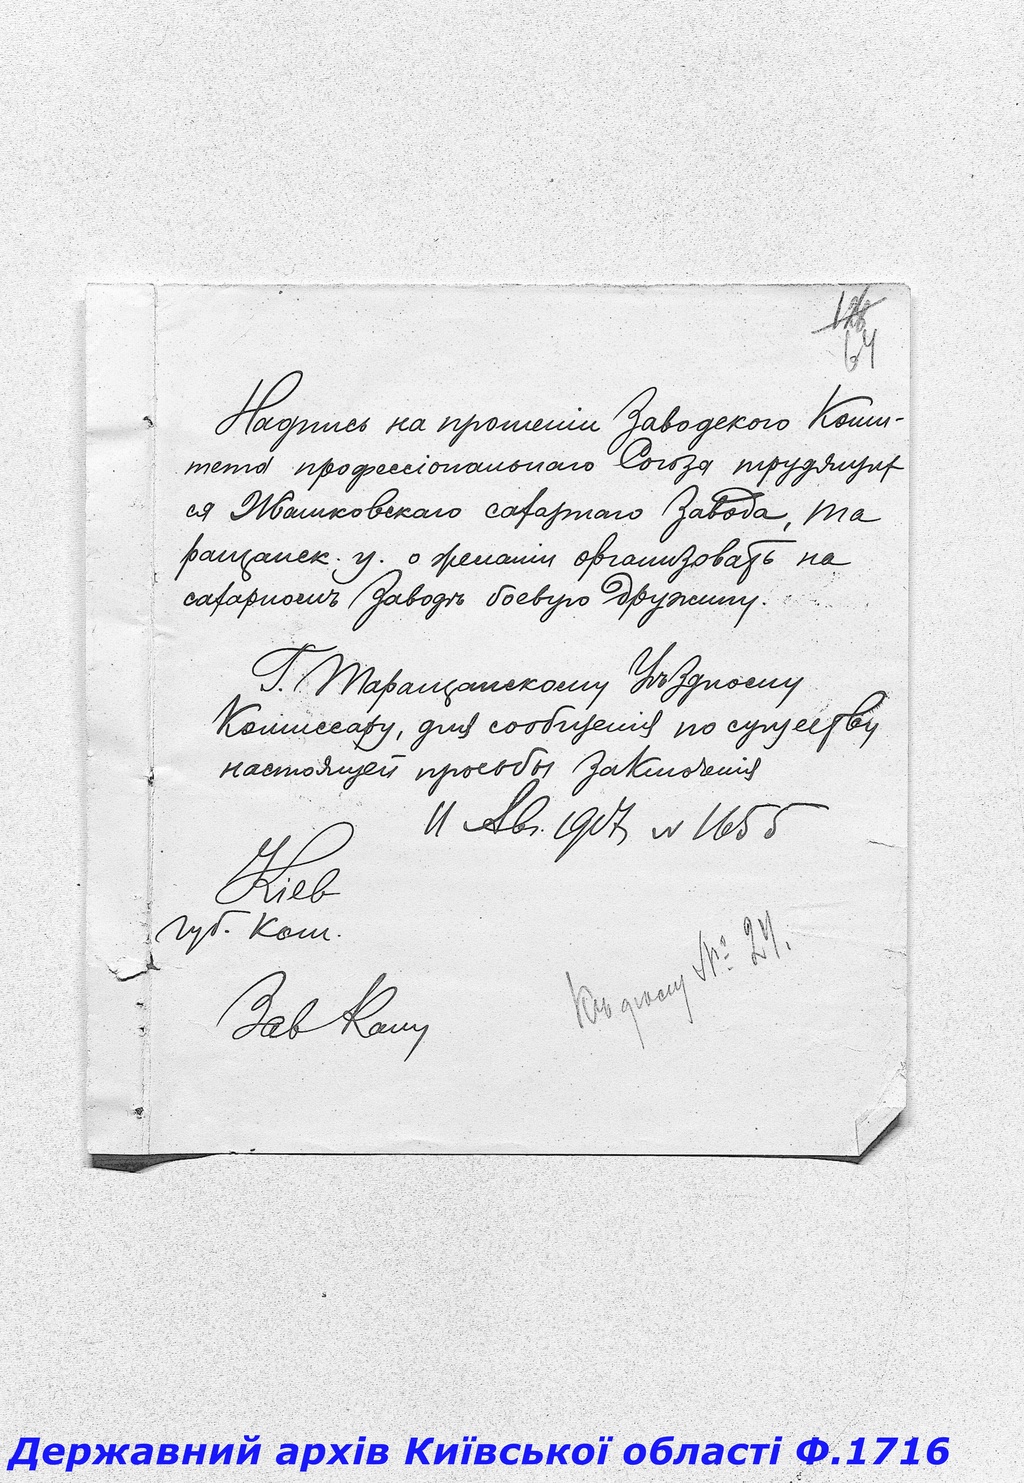 64
Надпись на прошеніи Заводского Коми-
тета профессіональнаго Союза трудящих
ся Жашковскаго сахарнаго Завода, Та
ращанск. у. о желаніи организовать на
сахарномъ Заводѣ боевую Дружину.
Г. Таращанскому Уѣздному
Комиссару, для сообщенія по существу
настоящей просьбы Заключенія
11 Авг. 1917 № 1655
Кіев
Губ. Ком.
Къ дѣлу № 24.
Зав Канц
Державний архів Київської області Ф.1716